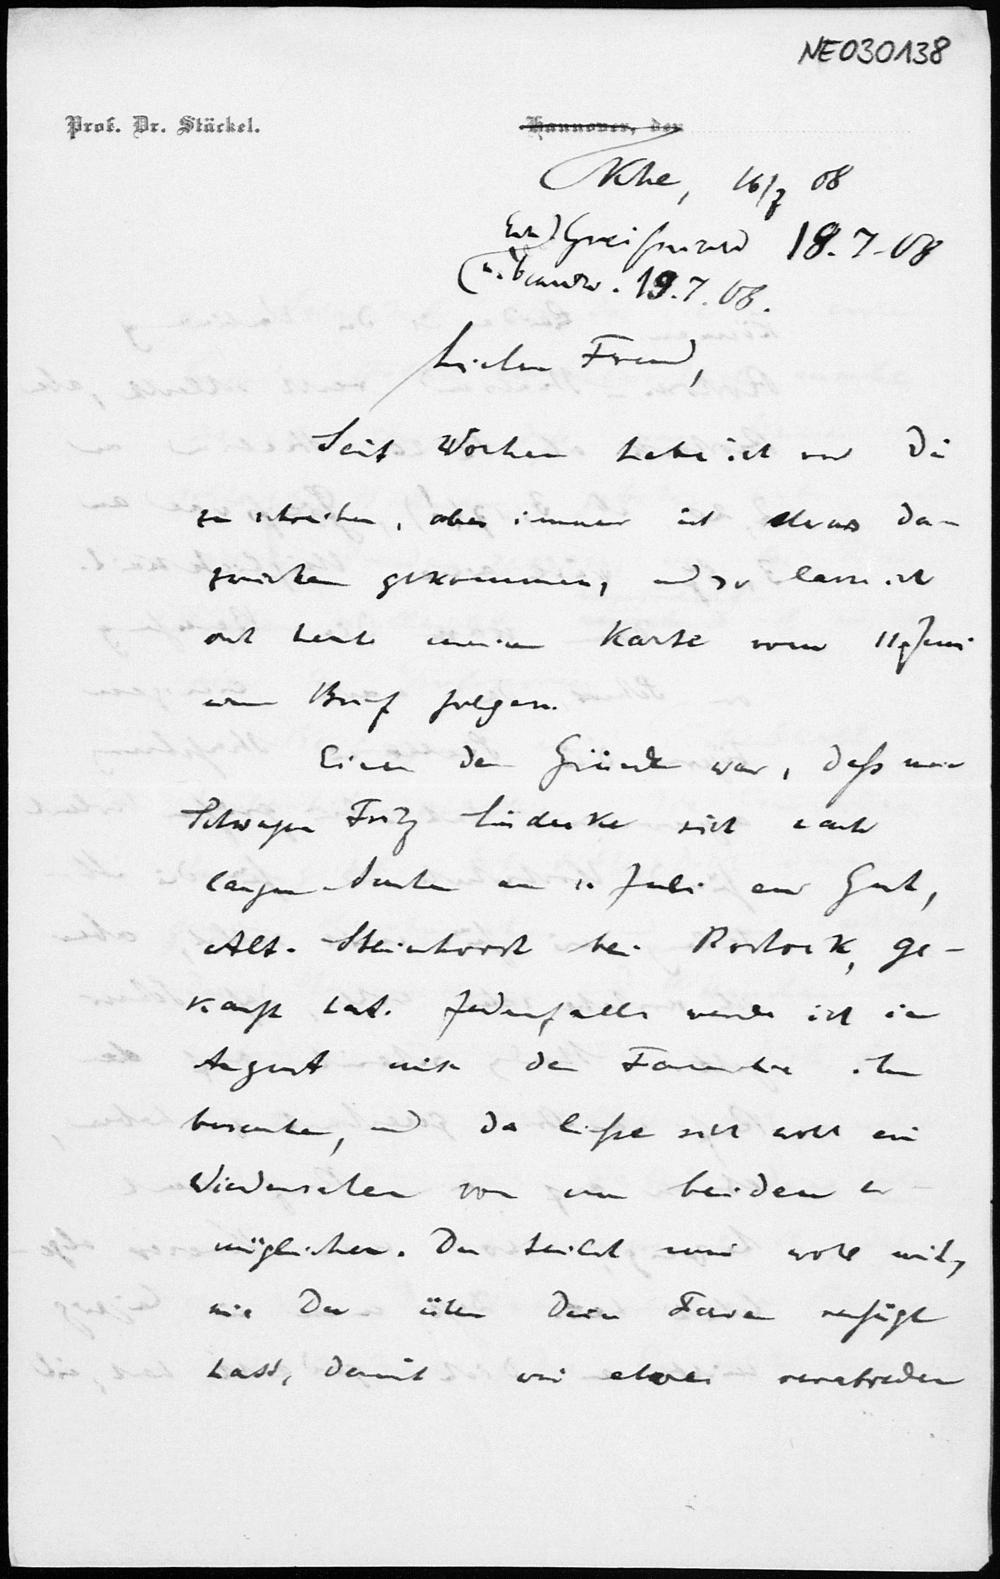 NE030138
Prof. Dr. Stäckel.
Hannover, den
Khe, 16/7 08
Greifswald 18.7.08
u. beantw. 19.7.08.
Lieber Freund,
Seit Wochen habe ich vor Dir
zu schreiben, aber immer ist etwas da-
zwischen gekommen, und so lasse ich
erst heute meiner Karte vom 11 Juni
einen Brief folgen.
Einer der Gründe war, daß mein
Schwager Fritz Lüderke sich nach
langem Suchen am 1. Juli ein Gut,
Alt-Steinhorst bei Rostock, ge-
kauft hat. Jedenfalls werde ich im
August mit der Familie ihn
besuchen, und da ließe sich wohl ein
Wiedersehen von uns beiden er-
möglichen. Du teilst mir wohl mit,
wie Du über Deine Ferien verfügt
hast, damit wir etwas verabreden